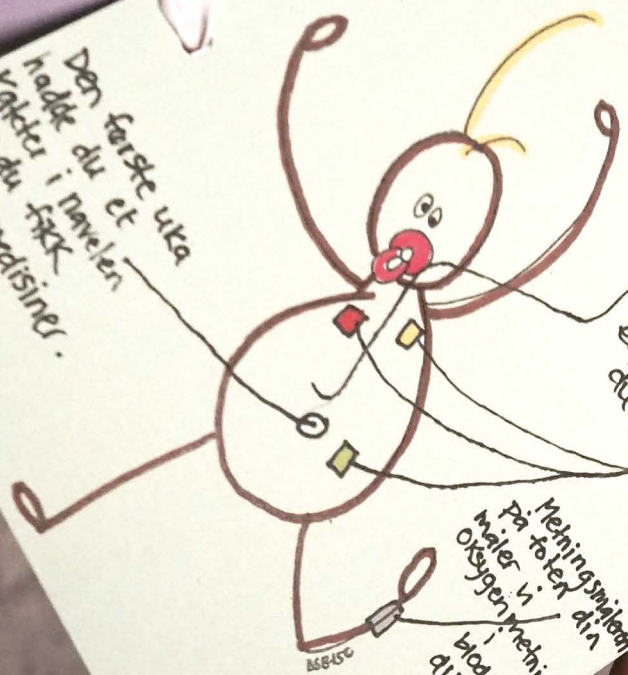 Den første uka
hadde du et
kateter i navelen
du fikk
medisiner.
du
Metningsmåleren
på foten din
måler vi
oksygenmetni
i
blod
BSB15C